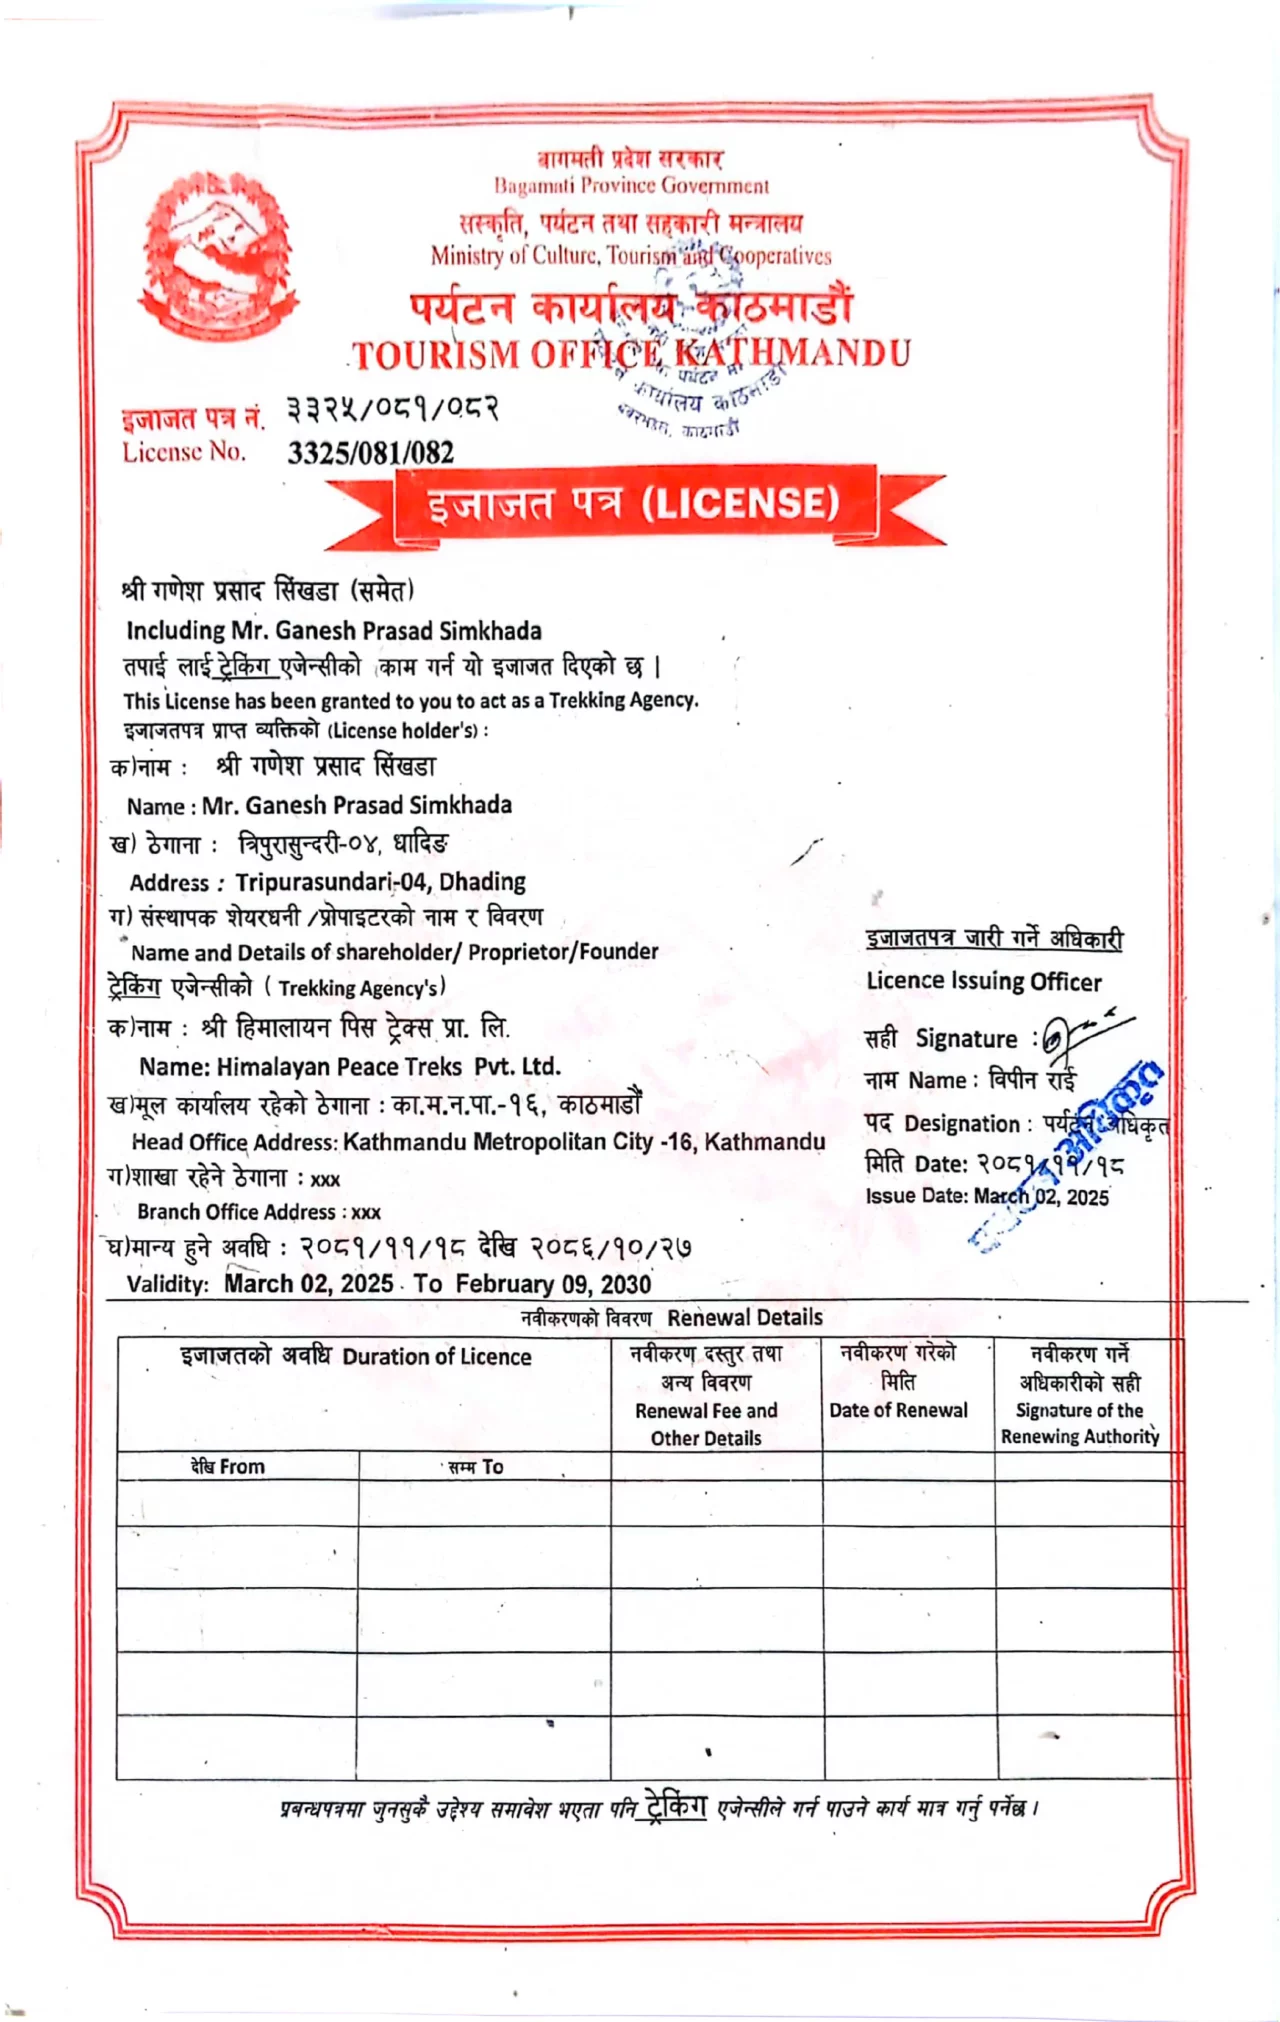 बागमती प्रदेश सरकार
Bagamati Province Government
संस्कृति, पर्यटन तथा सहकारी मन्त्रालय
Ministry of Culture, Tourism and Cooperatives
पर्यटन कार्यालय काठमाडौं
TOURISM OFFICE, KATHMANDU
कार्यालय काठमाडौं
काठमाडौं
इजाजत पत्र नं. ३३२५/०८१/०८२
License No. 3325/081/082
इजाजत पत्र (LICENSE)
श्री गणेश प्रसाद सिंखडा (समेत)
Including Mr. Ganesh Prasad Simkhada
तपाई लाई ट्रेकिंग एजेन्सीको काम गर्न यो इजाजत दिएको छ |
This License has been granted to you to act as a Trekking Agency.
इजाजतपत्र प्राप्त व्यक्तिको (License holder's) :
क)नाम : श्री गणेश प्रसाद सिंखडा
Name : Mr. Ganesh Prasad Simkhada
ख) ठेगाना : त्रिपुरासुन्दरी-०४, धादिङ
Address : Tripurasundari-04, Dhading
ग) संस्थापक शेयरधनी /प्रोपाइटरको नाम र विवरण
Name and Details of shareholder/ Proprietor/Founder
ट्रेकिंग एजेन्सीको ( Trekking Agency's)
क)नाम : श्री हिमालायन पिस ट्रेक्स प्रा. लि.
Name: Himalayan Peace Treks Pvt. Ltd.
ख)मूल कार्यालय रहेको ठेगाना : का.म.न.पा.-१६, काठमाडौं
Head Office Address: Kathmandu Metropolitan City -16, Kathmandu
ग)शाखा रहेने ठेगाना : xxx
Branch Office Address : xxx
घ)मान्य हुने अवधि : २०८१/११/१८ देखि २०८६/१०/२७
Validity: March 02, 2025 To February 09, 2030
इजाजतपत्र जारी गर्ने अधिकारी
Licence Issuing Officer
सही Signature :
नाम Name : विपीन राई
पद Designation : पर्यटन अधिकृत
मिति Date: २०८१/११/१८
Issue Date: March 02, 2025
अधिकृत
नवीकरणको विवरण Renewal Details
इजाजतको अवधि Duration of Licence
नवीकरण दस्तुर तथा
अन्य विवरण
Renewal Fee and
Other Details
नवीकरण गरेको
मिति
Date of Renewal
नवीकरण गर्ने
अधिकारीको सही
Signature of the
Renewing Authority
देखि From
सम्म To
प्रबन्धपत्रमा जुनसुकै उद्देश्य समावेश भएता पनि ट्रेकिंग एजेन्सीले गर्न पाउने कार्य मात्र गर्नु पर्नेछ ।